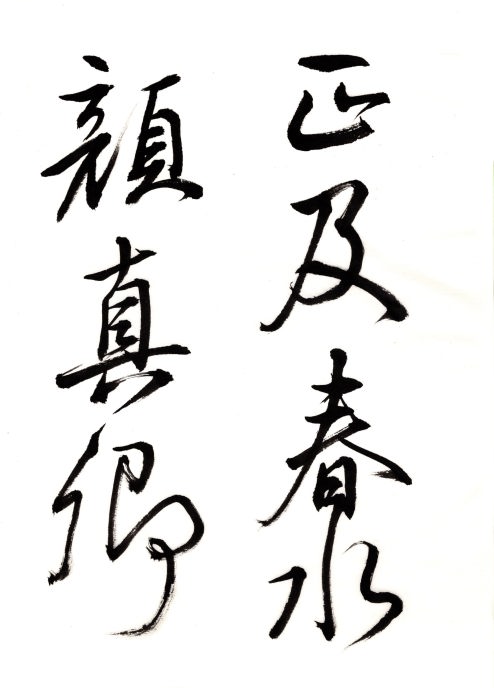 正及春水
顔真卿